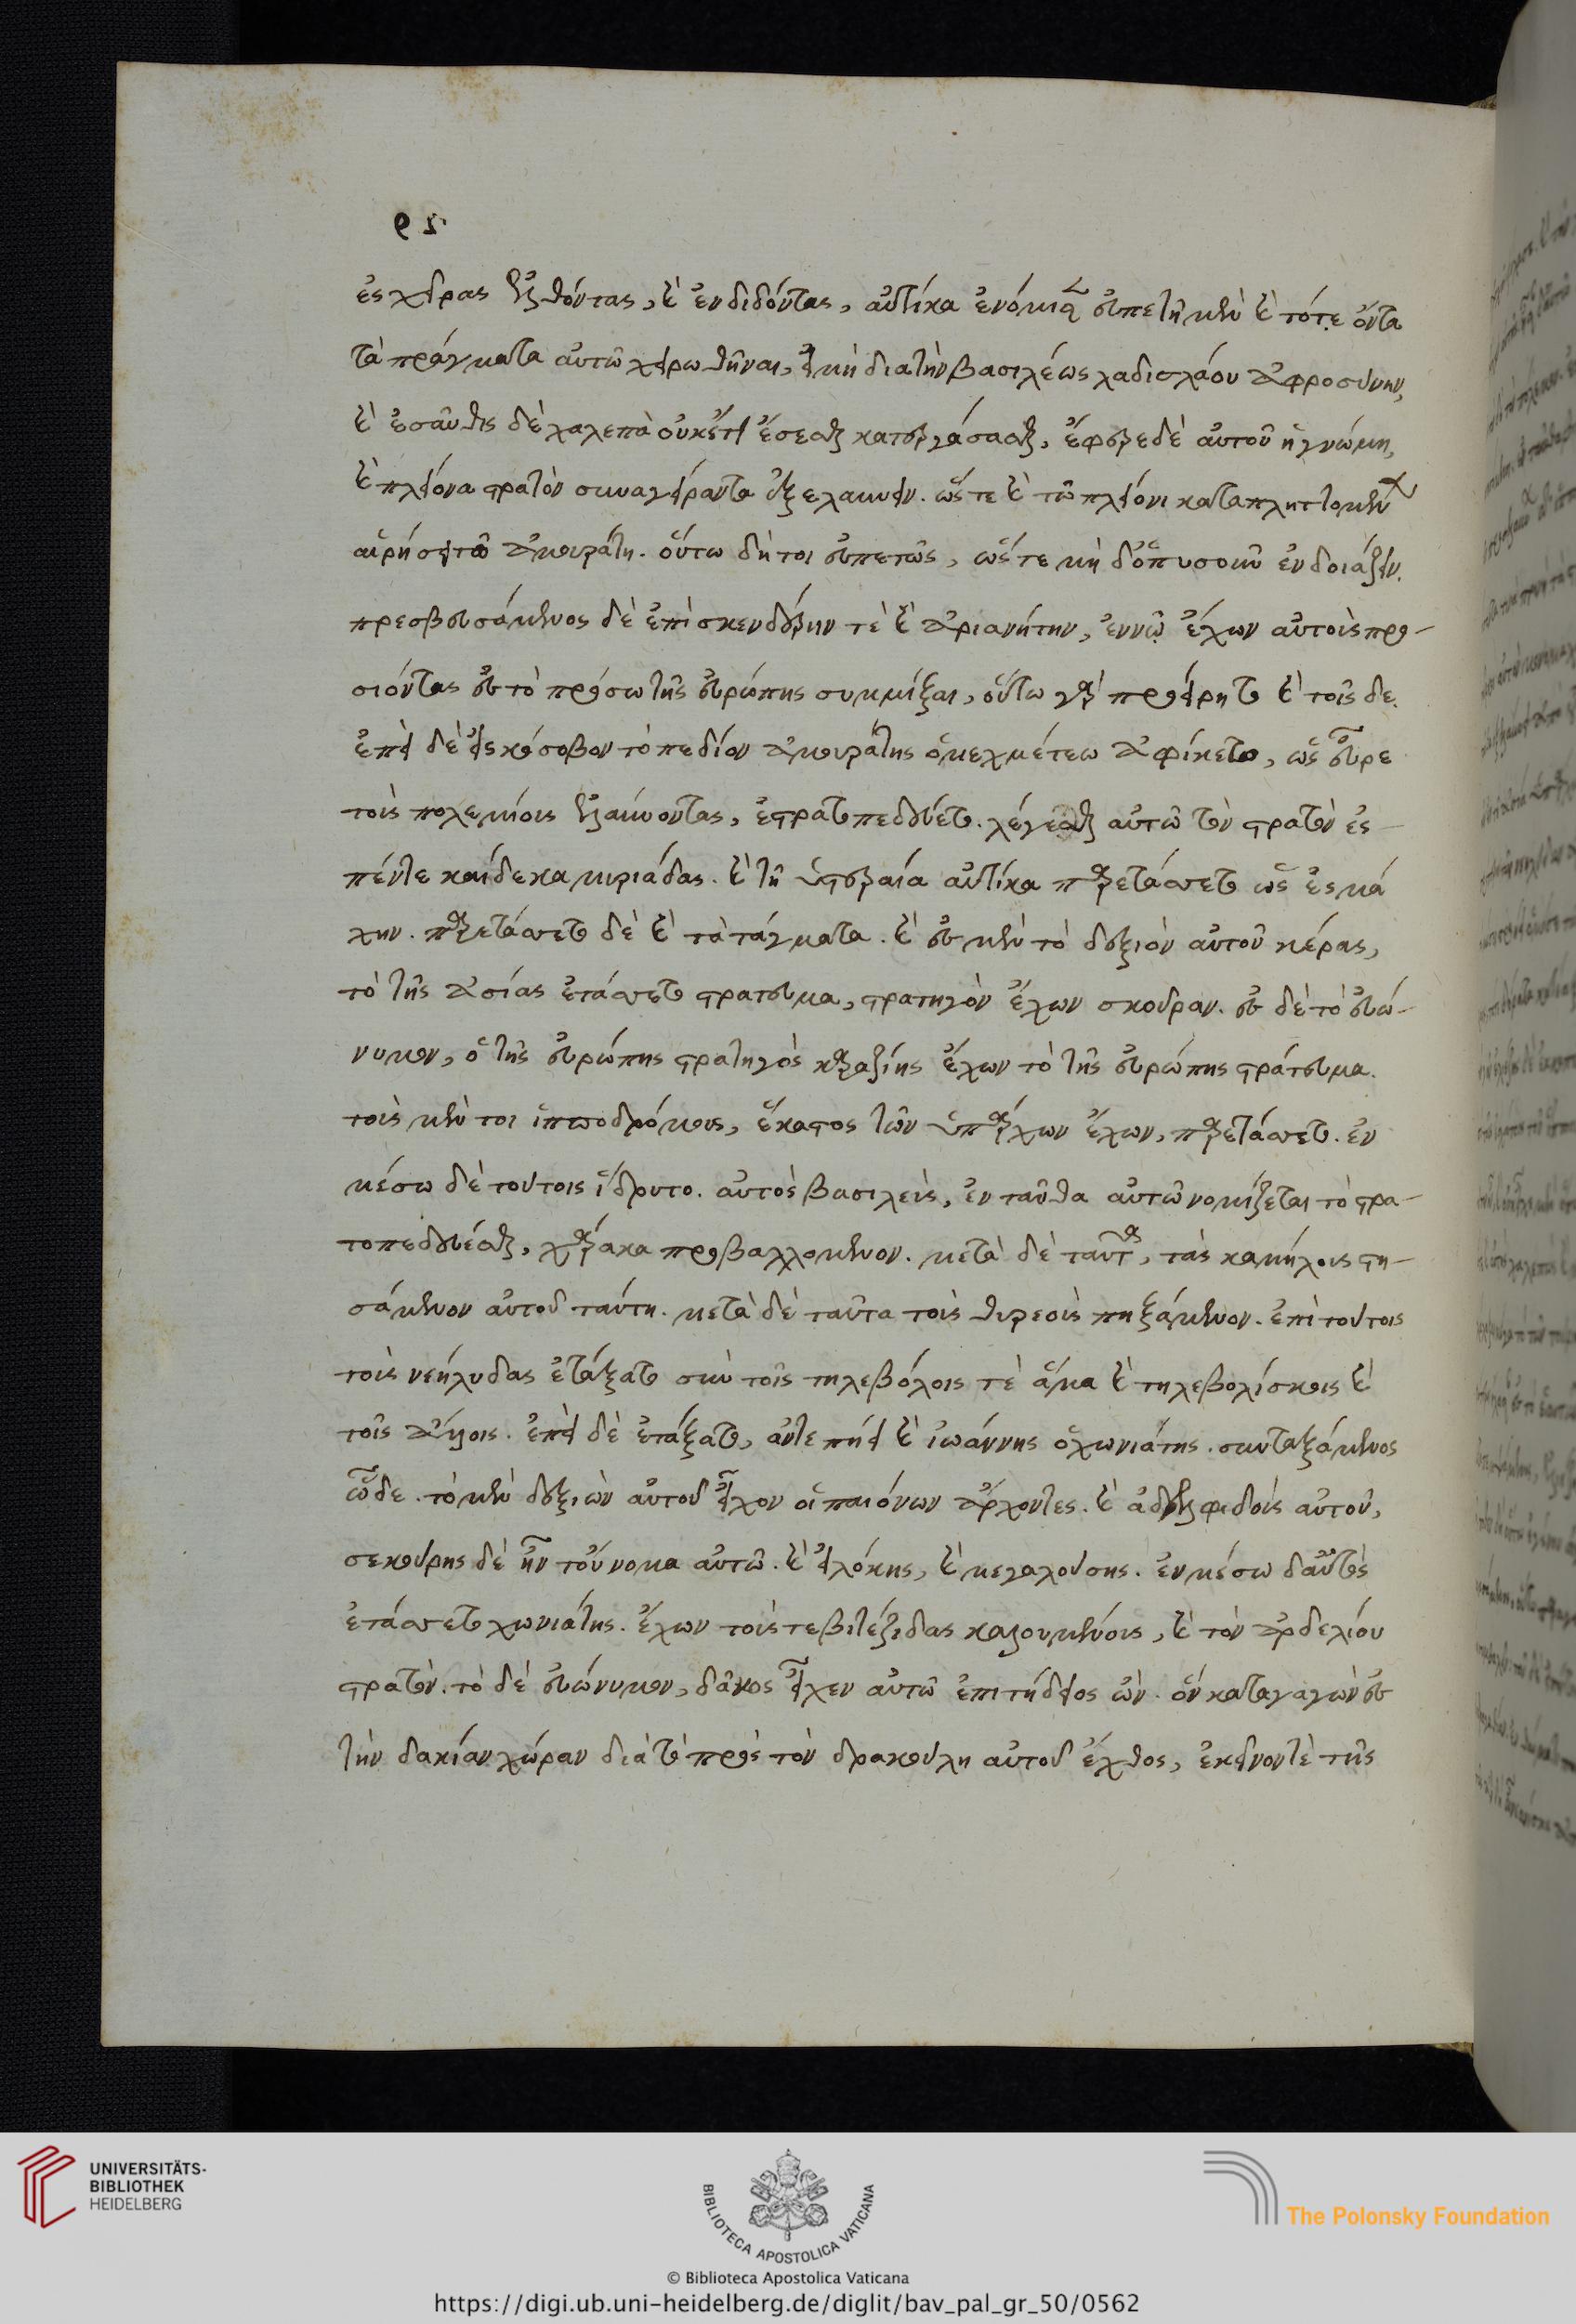 ἐς χεῖρας ἐλθόντας, καὶ ἐνδιδόντας, αὐτίκα ἐνόμισεν εὐπετῆ μὲν καὶ τότε ὄντα
τὰ πράγματα αὐτῶ χειρωθῆναι, εἰ μὴ διὰ τὴν βασιλέως λαδισλάου ἀφροσύνην,
καὶ ἐσαῦθις δὲ χαλεπὰ οὐκέτι ἔσεσθαι κατεργάσασθαι, ἔφερε δὲ αὐτοῦ ἡ γνώμη,
καὶ πλείονα στρατὸν συναγείραντα ἐξελαύνειν. ὥστε καὶ τῶ πλείονι καταπληττομένων
αἱρήσει τῶ ἀμουράτη. οὕτω δή τοι εὐπετῶς, ὥστε μὴ δ' ὁπωσοῦν ἐνδοιάζειν.
πρεσβευσάμενος δὲ ἐπὶ σκενδέρην τὲ καὶ ἀριανήτην, ἐν νῶ ἔχων αὐτοὺς προ-
σιόντας ἐς τὸ πρόσω τῆς εὐρώπης συμμίξαι, οὕτω γὰρ προείρητο καὶ τοῖς δε.
ἐπεὶ δὲ εἰς κόσοβον τὸ πεδίον ἀμουράτης ὁ μεχμέτεω ἀφίκετο, ὡς εὗρε
τοὺς πολεμίους ἐλαύνοντας, ἐστρατοπεδεύετο. λέγεσθαι αὐτῶ τὸν στρατὸν ἐς
πέντε καίδεκα μυριάδας. καὶ τῆ ὑστεραία αὐτίκα παρετάσσετο ὡς ἐς μά
χην. παρετάσσετο δὲ καὶ τὰ τάγματα. καὶ ἐς μὲν τὸ δεξιὸν αὐτοῦ κέρας,
τὸ τῆς ἀσίας ἐτάσσετο στράτευμα, στρατηγὸν ἔχων σκούραν. ἐς δὲ τὸ εὐώ-
νυμον, ὁ τῆς εὐρώπης στρατηγὸς καραζίης ἔχων τὸ τῆς εὐρώπης στράτευμα.
τοὺς μέν τοι ἱπποδρόμους, ἕκαστος τῶν ὑπάρχων ἔχων, παρετάσσετο. ἐν
μέσω δὲ τούτοις ἵδρυτο. αὐτὸς βασιλεὺς, ἐνταῦθα αὐτῶ νομίζεται τὸ στρα-
τοπεδεύεσθαι, χάρακα προβαλλόμενον. μετὰ δὲ ταῦτα, τὰς καμήλους στη-
σάμενον αὐτοῦ ταύτη. μετὰ δὲ ταῦτα τοὺς θυρεοὺς πηξάμενον. ἐπὶ τούτοις
τοὺς νεήλυδας ἐτάξατο σὺν τοῖς τηλεβόλοις τὲ ἅμα καὶ τηλεβολίσκοις καὶ
τοῖς ἄλλοις. ἐπεὶ δὲ ἐτάξατο, ἀντεπήει καὶ ἰωάννης ὁ χωνιάτης. συνταξάμενος
ὧδε. τὸ μὲν δεξιὸν αὐτοῦ εἶχον οἱ παιόνων ἄρχοντες. καὶ ἀδελφιδοὺς αὐτοῦ,
σεκούρης δὲ ἦν τοὔνομα αὐτῶ. καὶ εἰλόκης, καὶ μεγαλούσης. ἐν μέσω δ' αὐτὸς
ἐτάσσετο χωνιάτης. ἔχων τούς τε βιτέζιδας καλουμένους, καὶ τὸν ἀρδελίου
στρατόν. τὸ δὲ εὐώνυμον, δᾶνος εἶχεν αὐτῶ ἐπιτήδειος ὤν. ὃν καταγαγὼν ἐς
τὴν δακίαν χώραν διὰ τὸ πρὸς τὸν δρακούλη αὐτοῦ ἔχθος, ἐκεῖνον τὲ τῆς
UNIVERSITÄTS-
BIBLIOTHEK
HEIDELBERG
BIBLIOTECA APOSTOLICA VATICANA
The Polonsky Foundation
© Biblioteca Apostolica Vaticana
https://digi.ub.uni-heidelberg.de/diglit/bav_pal_gr_50/0562